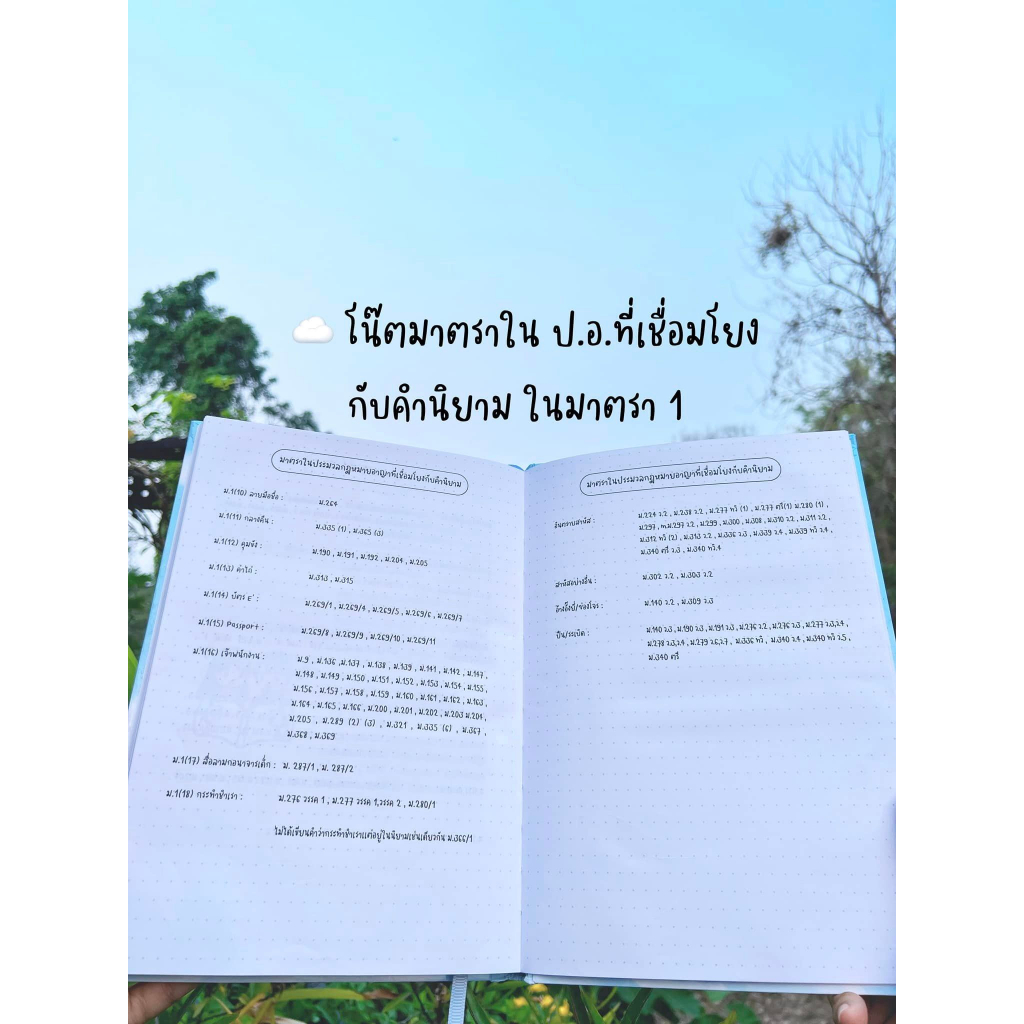 โน๊ตมาตราใน ป.อ.ที่เชื่อมโยง
กับคำนิยาม ในมาตรา 1
มาตราในประมวลกฎหมายอาญาที่เชื่อมโยงกับคำนิยาม
ม.1(10) ลายมือชื่อ : ม.264
ม.1(11) กลางคืน : ม.335 (1) , ม.365 (3)
ม.1(12) คุมขัง : ม.190 , ม.191 , ม.192 , ม.204 , ม.205
ม.1(13) ค่าไถ่ : ม.313 , ม.315
ม.1(14) บัตร E' : ม.269/1 , ม.269/4 , ม.269/5 , ม.269/6 , ม.269/7
ม.1(15) Passport : ม.269/8 , ม.269/9 , ม.269/10 , ม.269/11
ม.1(16) เจ้าพนักงาน : ม.9 , ม.136 ,ม.137 , ม.138 , ม.139 , ม.141 , ม.142 , ม.147 ,
ม.148 , ม.149 , ม.150 , ม.151 , ม.152 , ม.153 , ม.154 , ม.155 ,
ม.156 , ม.157 , ม.158 , ม.159 , ม.160 , ม.161 , ม.162 , ม.163 ,
ม.164 , ม.165 , ม.166 , ม.200 , ม.201 , ม.202 , ม.203 ม.204 ,
ม.205 , ม.289 (2) (3) , ม.321 , ม.335 (6) , ม.367 ,
ม.368 , ม.369
ม.1(17) สื่อลามกอนาจารเด็ก : ม. 287/1 , ม. 287/2
ม.1(18) กระทำชำเรา : ม.276 วรรค 1 , ม.277 วรรค 1,วรรค 2 , ม.280/1
ไม่ได้เขียนคำว่ากระทำชำเราแต่อยู่ในนิยามเช่นเดียวกัน ม.366/1
มาตราในประมวลกฎหมายอาญาที่เชื่อมโยงกับคำนิยาม
อันตรายสาหัส : ม.224 ว.2 , ม.238 ว.2 , ม.277 ทวิ (1) , ม.277 ตรี(1) ม.280 (1) ,
ม.297 , ม.297 ว.2 , ม.299 , ม.300 , ม.308 , ม.310 ว.2 , ม.311 ว.2 ,
ม.312 ทวิ (2) , ม.313 ว.2 , ม.336 ว.3 , ม.339 ว.4 , ม.339 ทวิ ว.4 ,
ม.340 ตรี ว.3 , ม.340 ทวิ ว.4
สาหัสอย่างอื่น : ม.302 ว.2 , ม.303 ว.2
อ้างอั้งยี่/ซ่องโจร : ม.140 ว.2 , ม.309 ว.3
ปืน/ระเบิด : ม.140 ว.3 , ม.190 ว.3 , ม.191 ว.3 , ม.276 ว.2 , ม.276 ว.3 , ม.277 ว.3,ว.4 ,
ม.278 ว.3,ว.4 , ม.279 ว.6,ว.7 , ม.336 ทวิ , ม.340 ว.4 , ม.340 ทวิ ว.5 ,
ม.340 ตรี